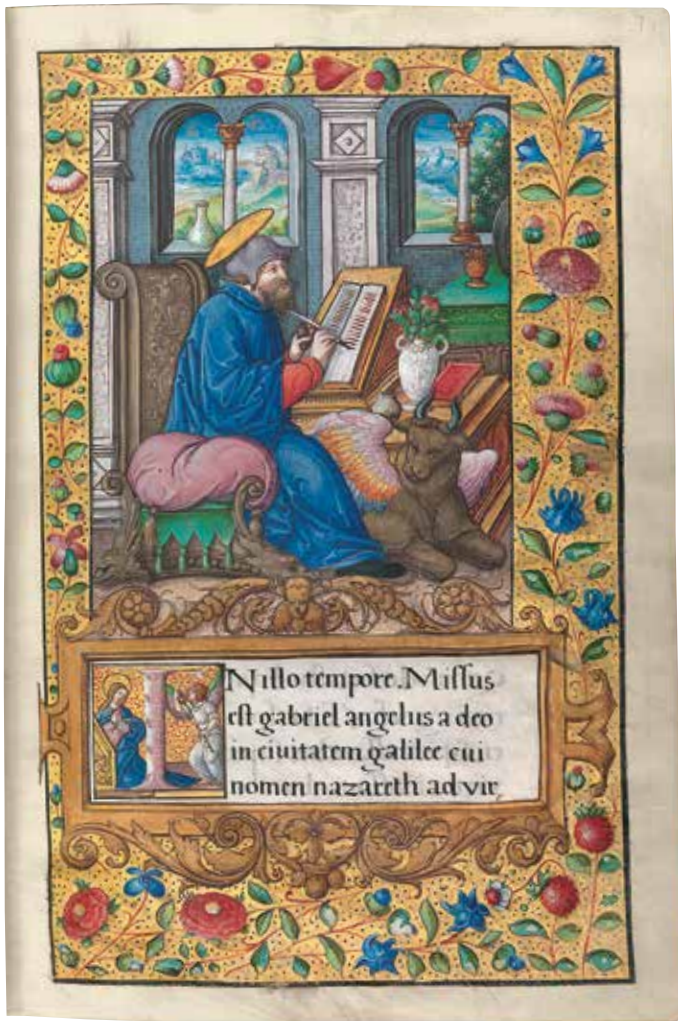 IN illo tempore. Missus
est gabriel angelus a deo
in ciuitatem galilee cui
nomen nazareth ad vir